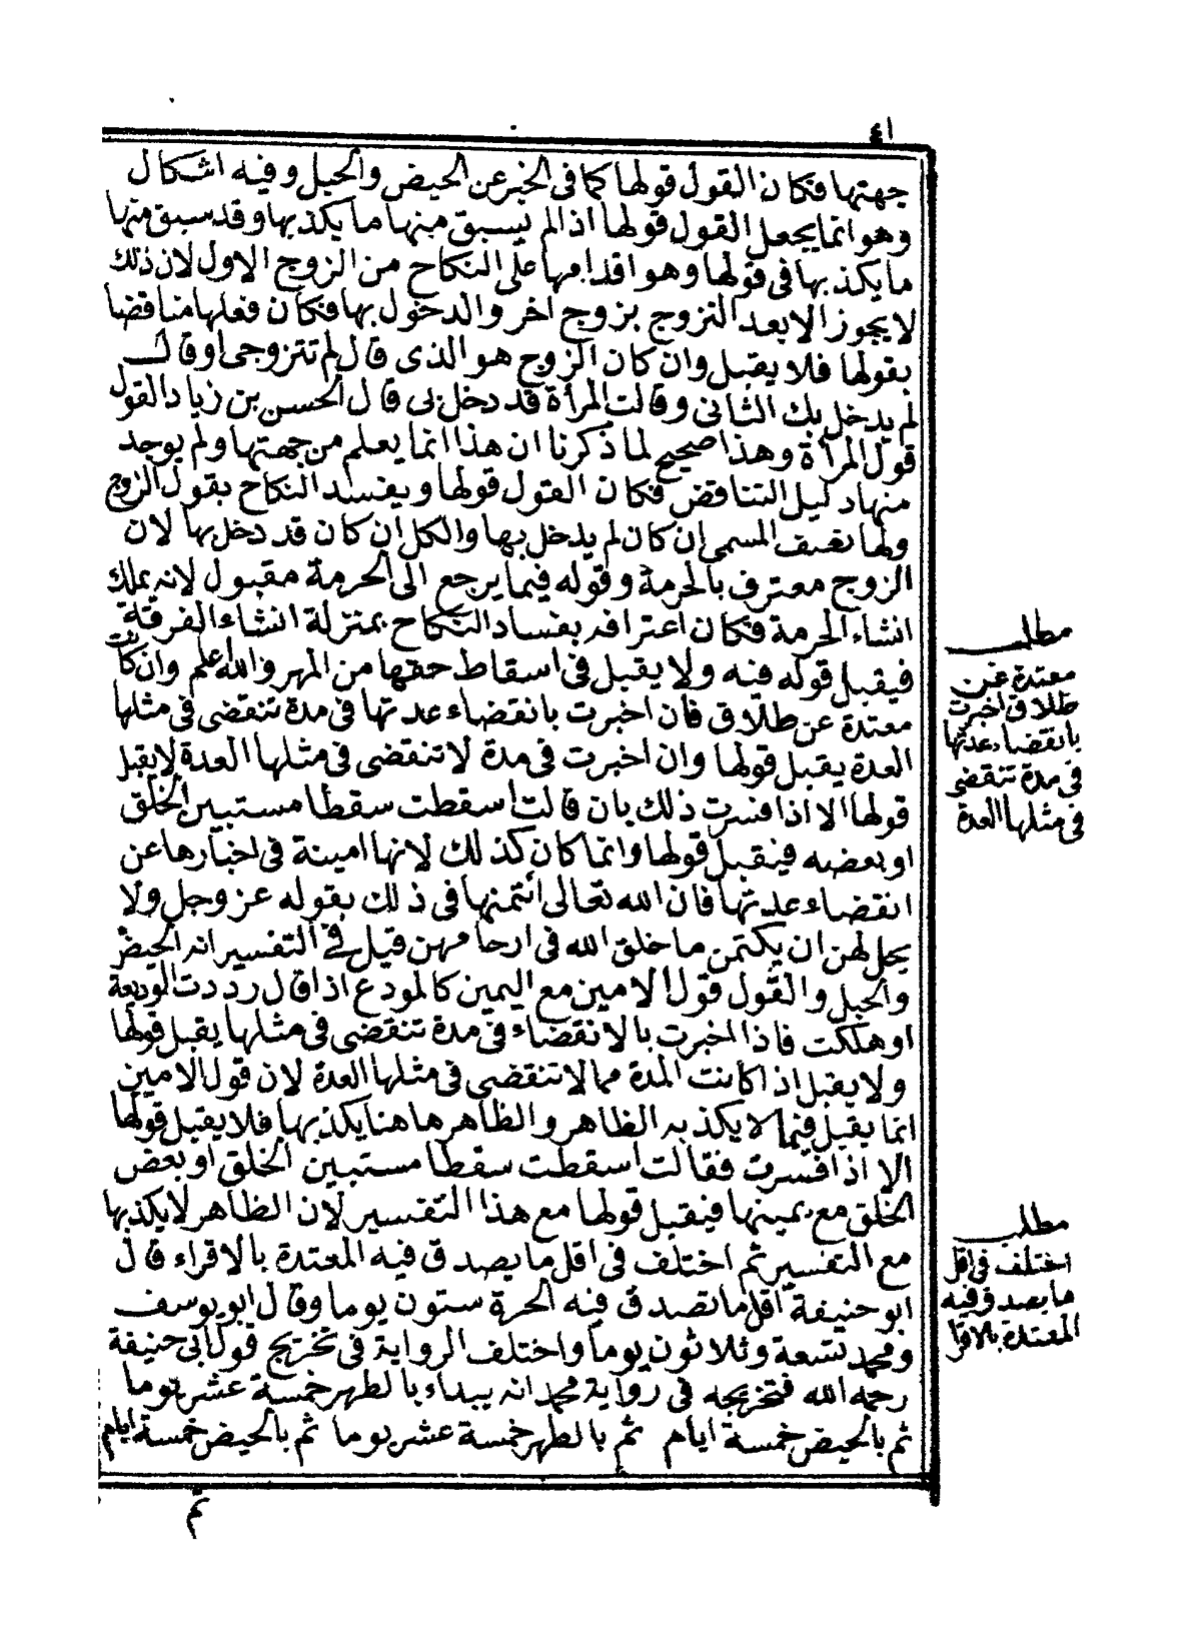 ٤١
جهتها فكان القول قولها كما فى الخبر عن الحيض والحبل وفيه اشكال
وهو انما يجعل القول قولها اذا لم يسبق منها ما يكذبها وقد سبق منها
ما يكذبها فى قولها وهو اقدامها على النكاح من الزوج الاول لان ذلك
لا يجوز الا بعد التزوج بزوج اخر والدخول بها فكان فعلها مناقضا
بقولها فلا يقبل وان كان الزوج هو الذى قال لم تتزوجى او قال
لم يدخل بك الثانى وقالت المرأة قد دخل بى قال الحسن بن زياد القول
قول المرأة وهذا صحيح لما ذكرنا ان هذا انما يعلم من جهتها ولم يوجد
منها دليل التناقض فكان القول قولها ويفسد النكاح بقول الزوج
ولها نصف المسمى ان كان لم يدخل بها والكل ان كان قد دخل بها لان
الزوج معترف بالحرمة وقوله فيما يرجع الى الحرمة مقبول لانه يملك
انشاء الحرمة فكان اعترافه بفساد النكاح بمنزلة انشاء الفرقة
فيقبل قوله فيه ولا يقبل فى اسقاط حقها من المهر والله اعلم وان كانت
معتدة عن طلاق فان اخبرت بانقضاء عدتها فى مدة تنقضى فى مثلها
العدة يقبل قولها وان اخبرت فى مدة لا تنقضى فى مثلها العدة لا يقبل
قولها الا اذا فسرت ذلك بان قالت اسقطت سقطا مستبين الخلق
او بعضه فيقبل قولها وانما كان كذلك لانها امينة فى اخبارها عن
انقضاء عدتها فان الله تعالى ائتمنها فى ذلك بقوله عز وجل ولا
يحل لهن ان يكتمن ما خلق الله فى ارحامهن قيل فى التفسير انه الحيض
والحبل والقول قول الامين مع اليمين كالمودع اذا قال رددت الوديعة
او هلكت فاذا اخبرت بالانقضاء فى مدة تنقضى فى مثلها يقبل قولها
ولا يقبل اذا كانت المدة مما لا تنقضى فى مثلها العدة لان قول الامين
انما يقبل فيما لا يكذبه الظاهر والظاهر هاهنا يكذبها فلا يقبل قولها
الا اذا فسرت فقالت اسقطت سقطا مستبين الخلق او بعض
الخلق مع يمينها فيقبل قولها مع هذا التفسير لان الظاهر لا يكذبها
مع التفسير ثم اختلف فى اقل ما يصدق فيه المعتدة بالاقراء قال
ابو حنيفة اقل ما تصدق فيه الحرة ستون يوما وقال ابو يوسف
ومحمد تسعة وثلاثون يوما واختلف الرواية فى تخريج قول ابى حنيفة
رحمه الله فتخريجه فى رواية محمد انه يبداء بالطهر خمسة عشر يوما
ثم بالحيض خمسة ايام ثم بالطهر خمسة عشر يوما ثم بالحيض خمسة ايام
ثم
مطلب
معتدة عن
طلاق اخبرت
بانقضاء عدتها
فى مدة تنقضى
فى مثلها العدة
مطلب
اختلف فى اقل
ما يصدق فيه
المعتدة بالاقرا